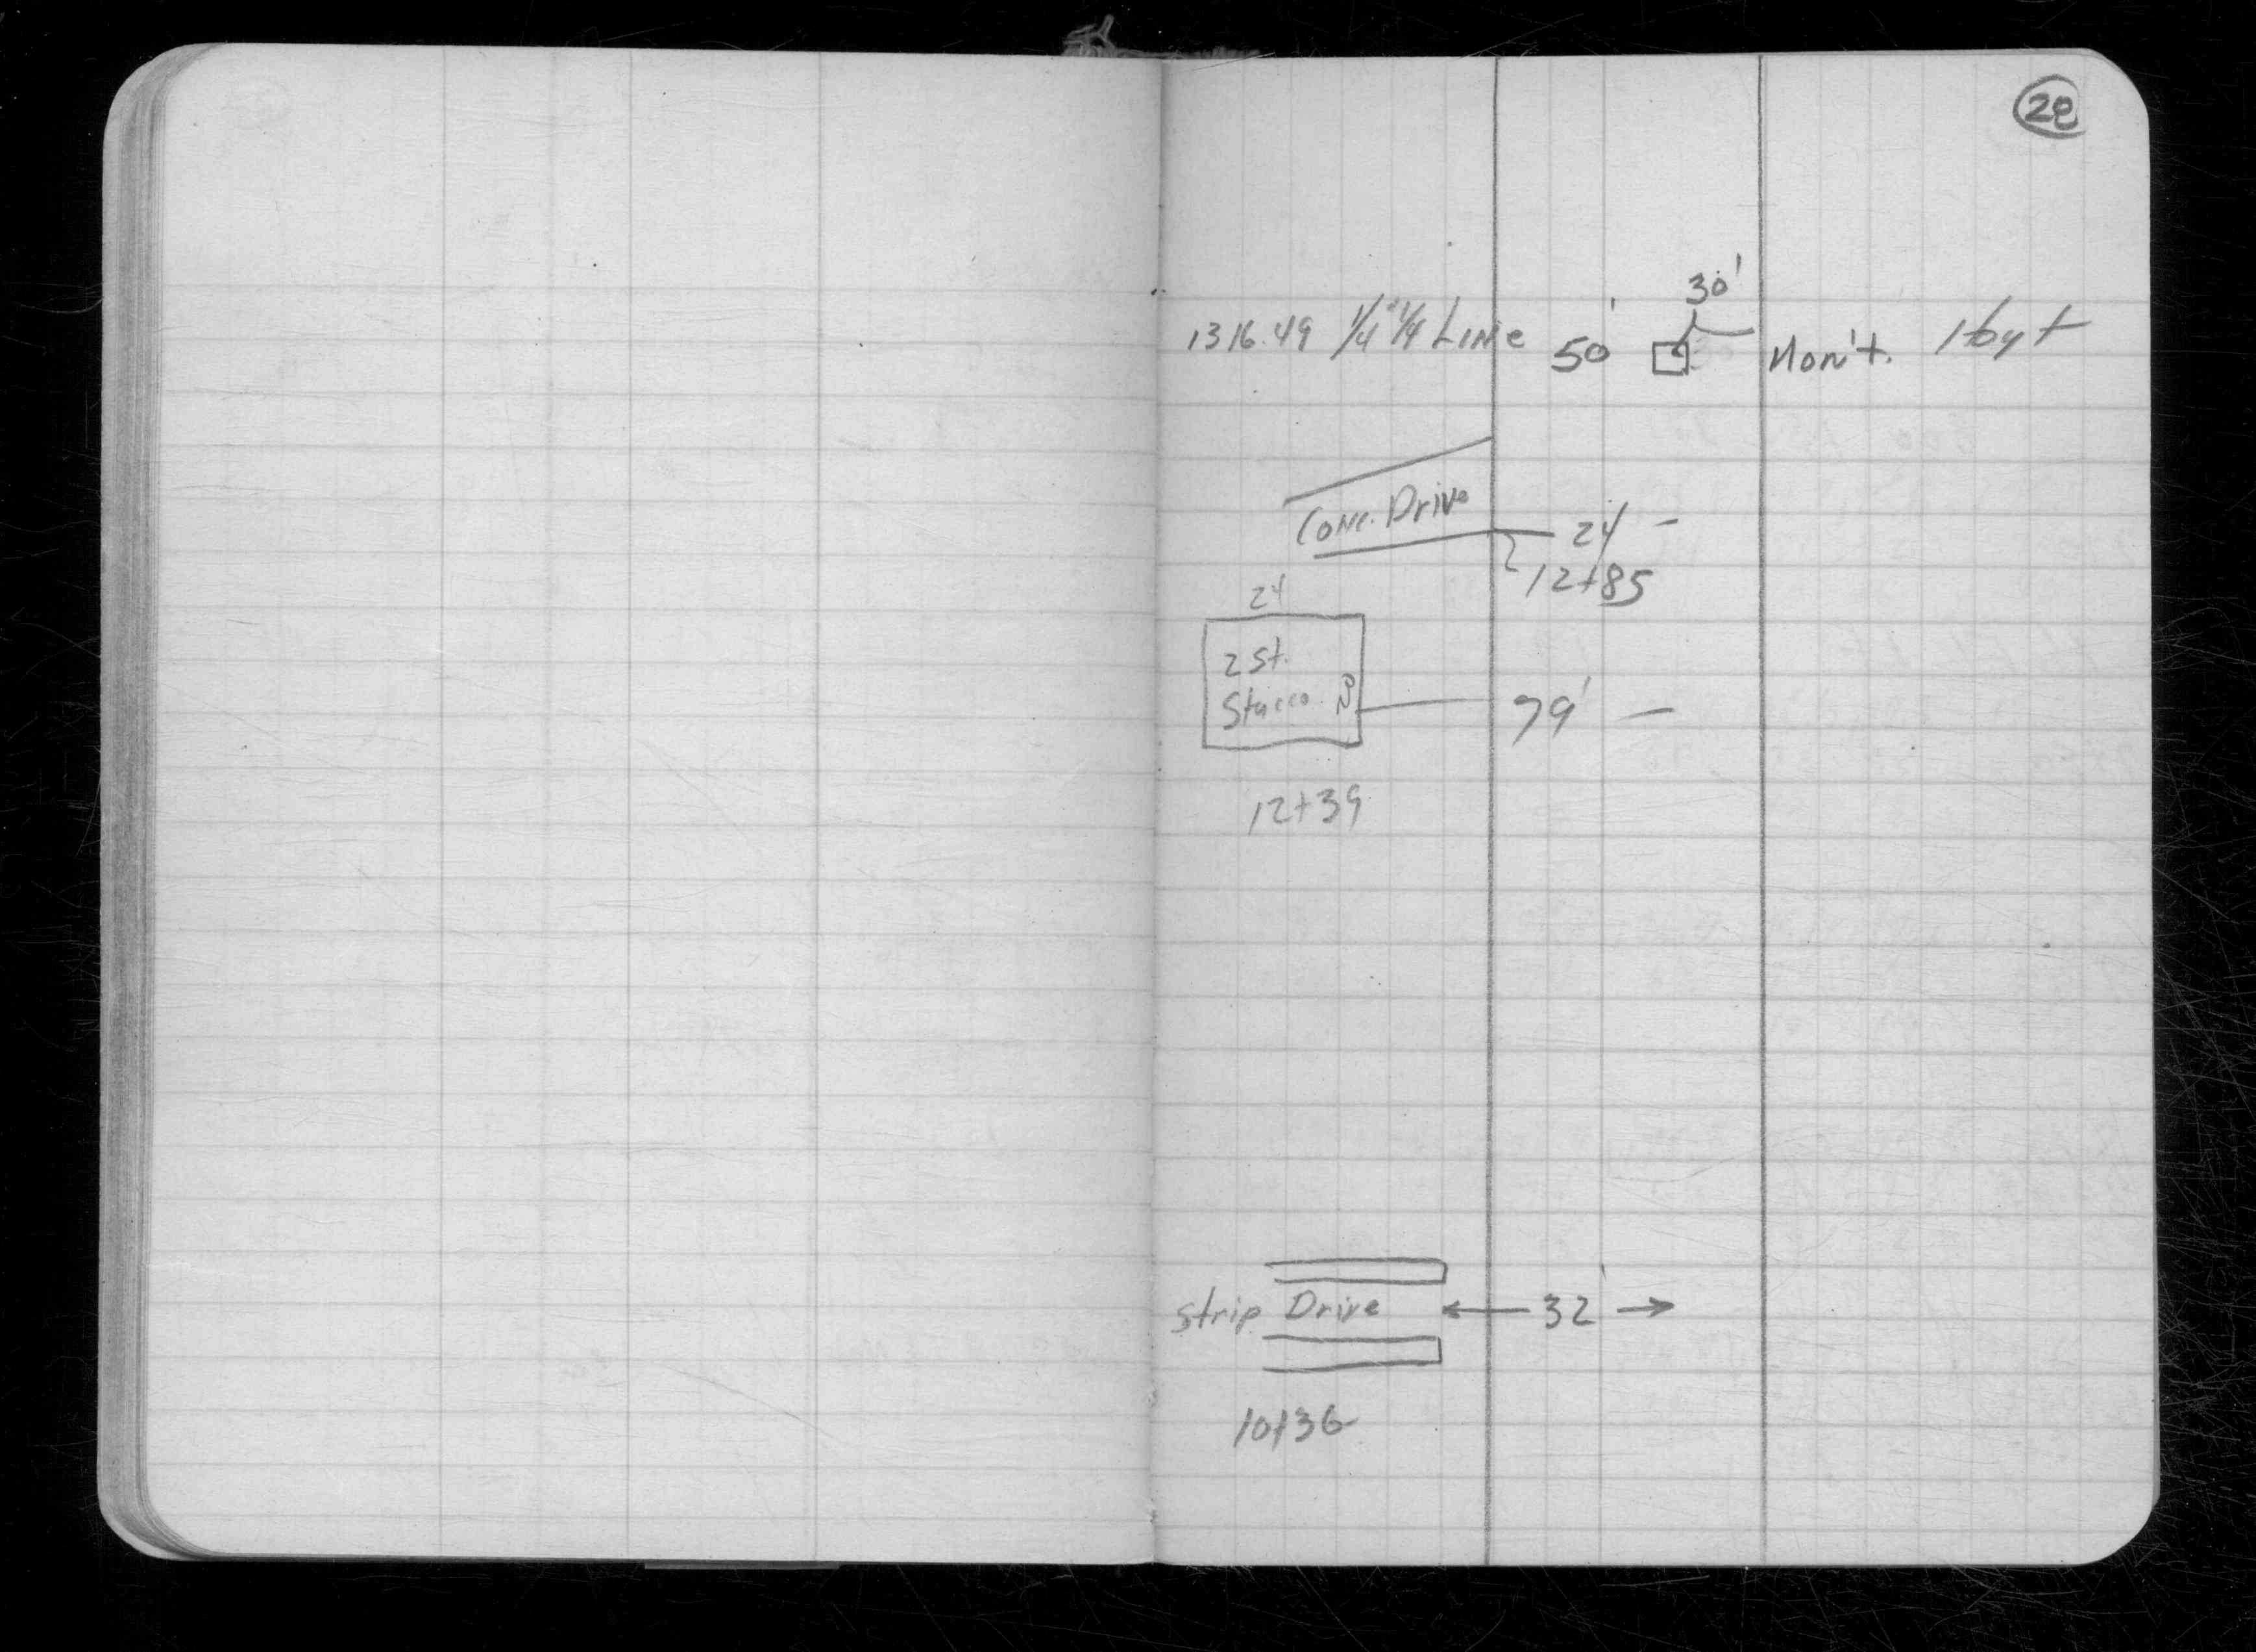 28
30'
1316.49 1/4 1/4 Line 50' Mon't. Hoyt
Conc. Drive
24 -
12+85
24
2 St.
Stucco
79' -
12+39
Strip Drive 32'
10+36